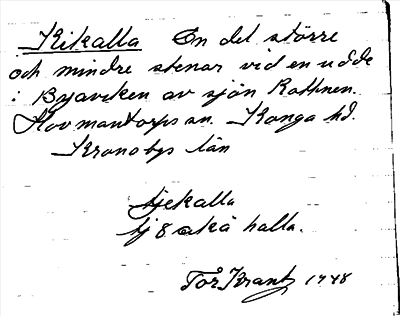 Kikalla En del större
och mindre stenar vid en udde
i Byaviken av sjön Rottnen.
Hovmantorps sn. Konga hd.
Kronobgs län
kjekalla
kj8akå halla.
Tor Krantz 1948